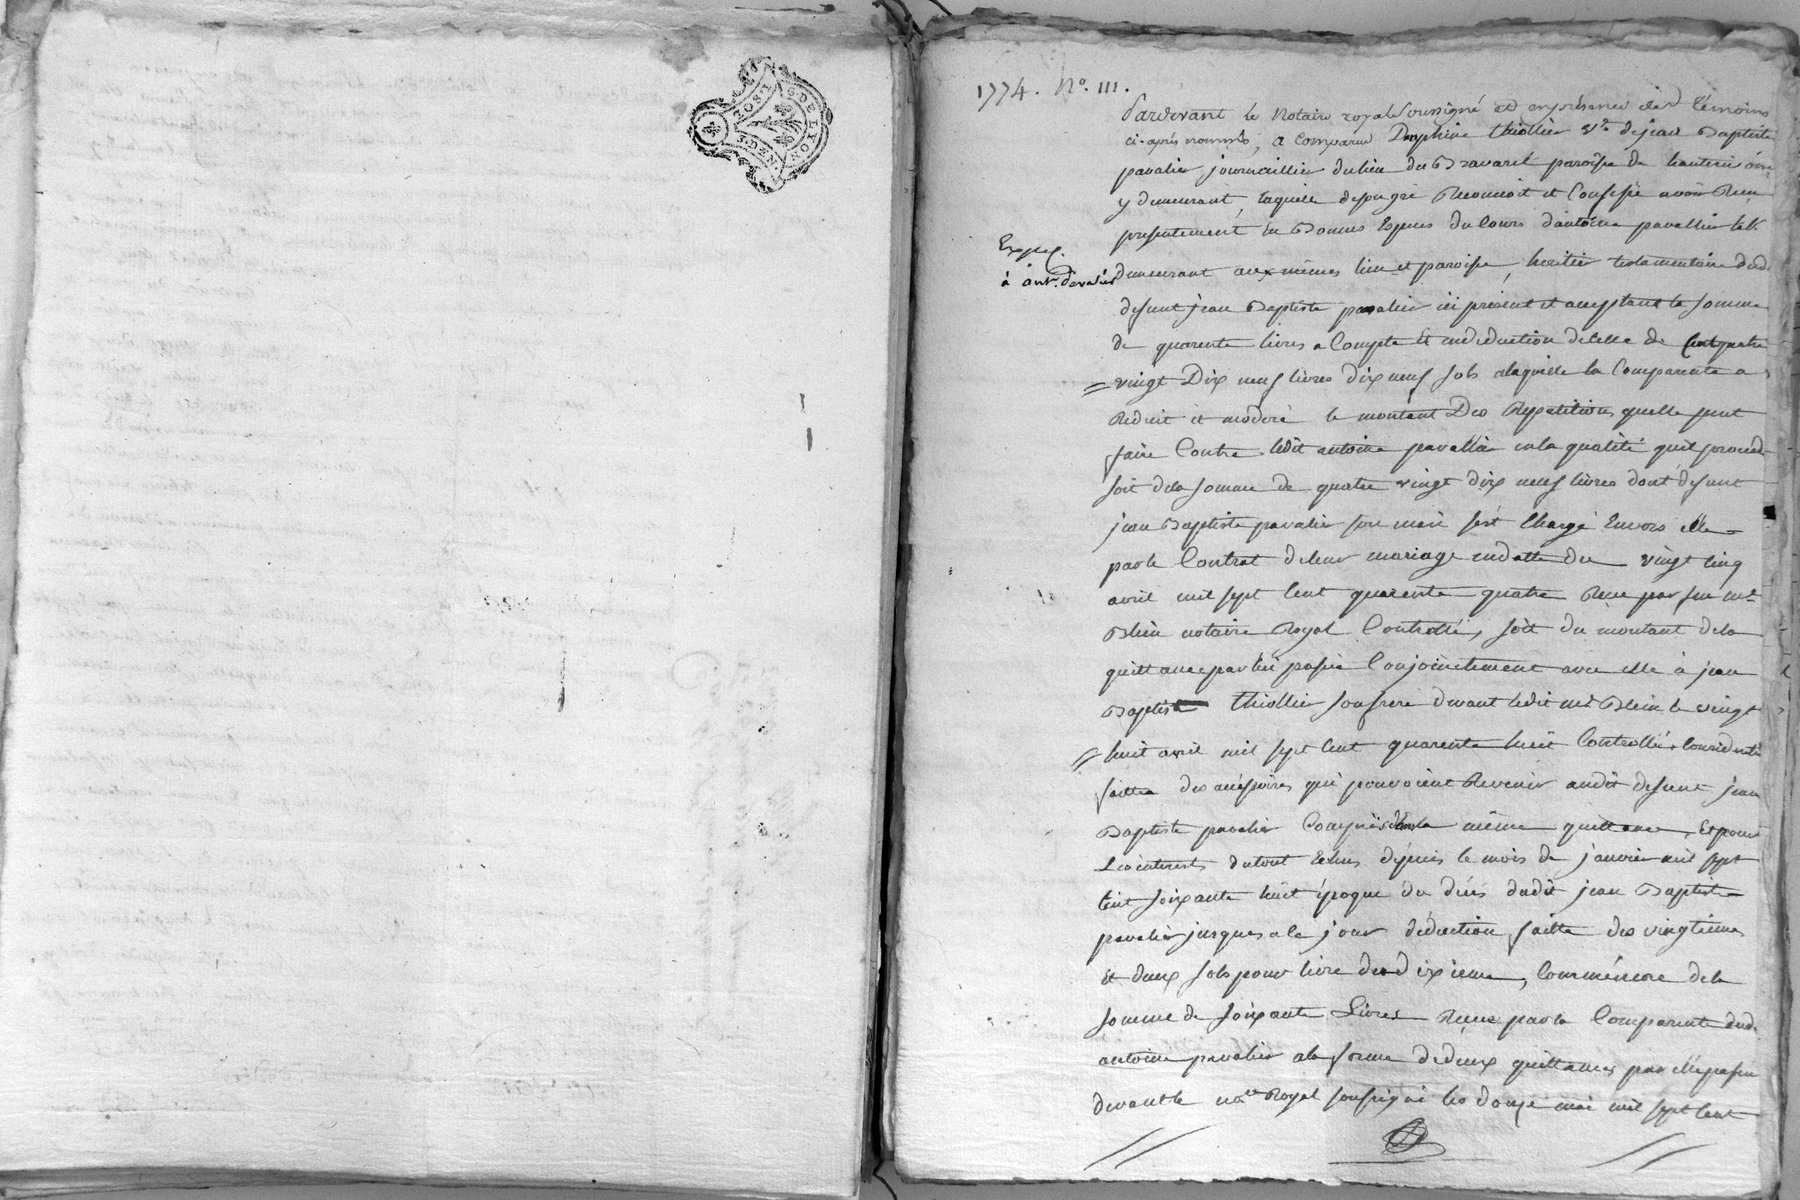 G. DE LYON
2. SOLS
DEN.
1774. N.º 111.
Pardevant le Notaire royal Soussigné et en présence des témoins
ci-après nommés, a Comparu Dauphine thiollier v.e de jean Baptiste
pavalier journaillier du lieu du Bravard paroisse de
y demeurant, laquelle de son gré Reconnoit et Confesse avoir Reçu
présentement en Bonnes Espèces du Cours d'antoine pavallier
Expéd.
à ant. pavalier
demeurant aux mêmes lieu et paroisse, heritier testamentaire dud.
defunt jean Baptiste pavalier ici présent et acceptant la somme
de quarente livres a Compte et en deduction de celle de Cent quatre
vingt Dix neuf livres dix neuf sols alaquelle la Comparente a
Reduit et moderé le montant Des Repetitions quelle peut
faire Contre ledit antoine pavallier en la qualité quil procede
soit de la somme de quatre vingt dix neuf livres dont defunt
jean Baptiste pavalier son mari sest Chargé Envers elle
par le Contrat de leur mariage en datte du vingt cinq
avril mil sept Cent quarente quatre Reçu par feu m.e
Blein notaire Royal Controllé, soit du montant de la
quittance par lui passée Conjointement avec elle à jean
Baptiste thiollier son frere devant ledit me Blein le vingt
huit avril mil sept Cent quarente huit Controllée,
faitte des accessoires qui pouvoient Revenir audit defunt jean
Baptiste pavalier Compris dans la même quittance, Et pour
Les interests du tout Echus depuis le mois de janvier mil sept
Cent soixante huit époque du décès dudit jean Baptiste
pavalier jusques a ce jour déduction faitte des vingtiemes
et deux sols pour livre du dixieme, Comme encore de la
somme de soixante Livres Reçue par la Comparente dud.
antoine pavalier a la forme de deux quittances par elle passées
devant le no.re Royal soussigné les douze mai mil sept Cent